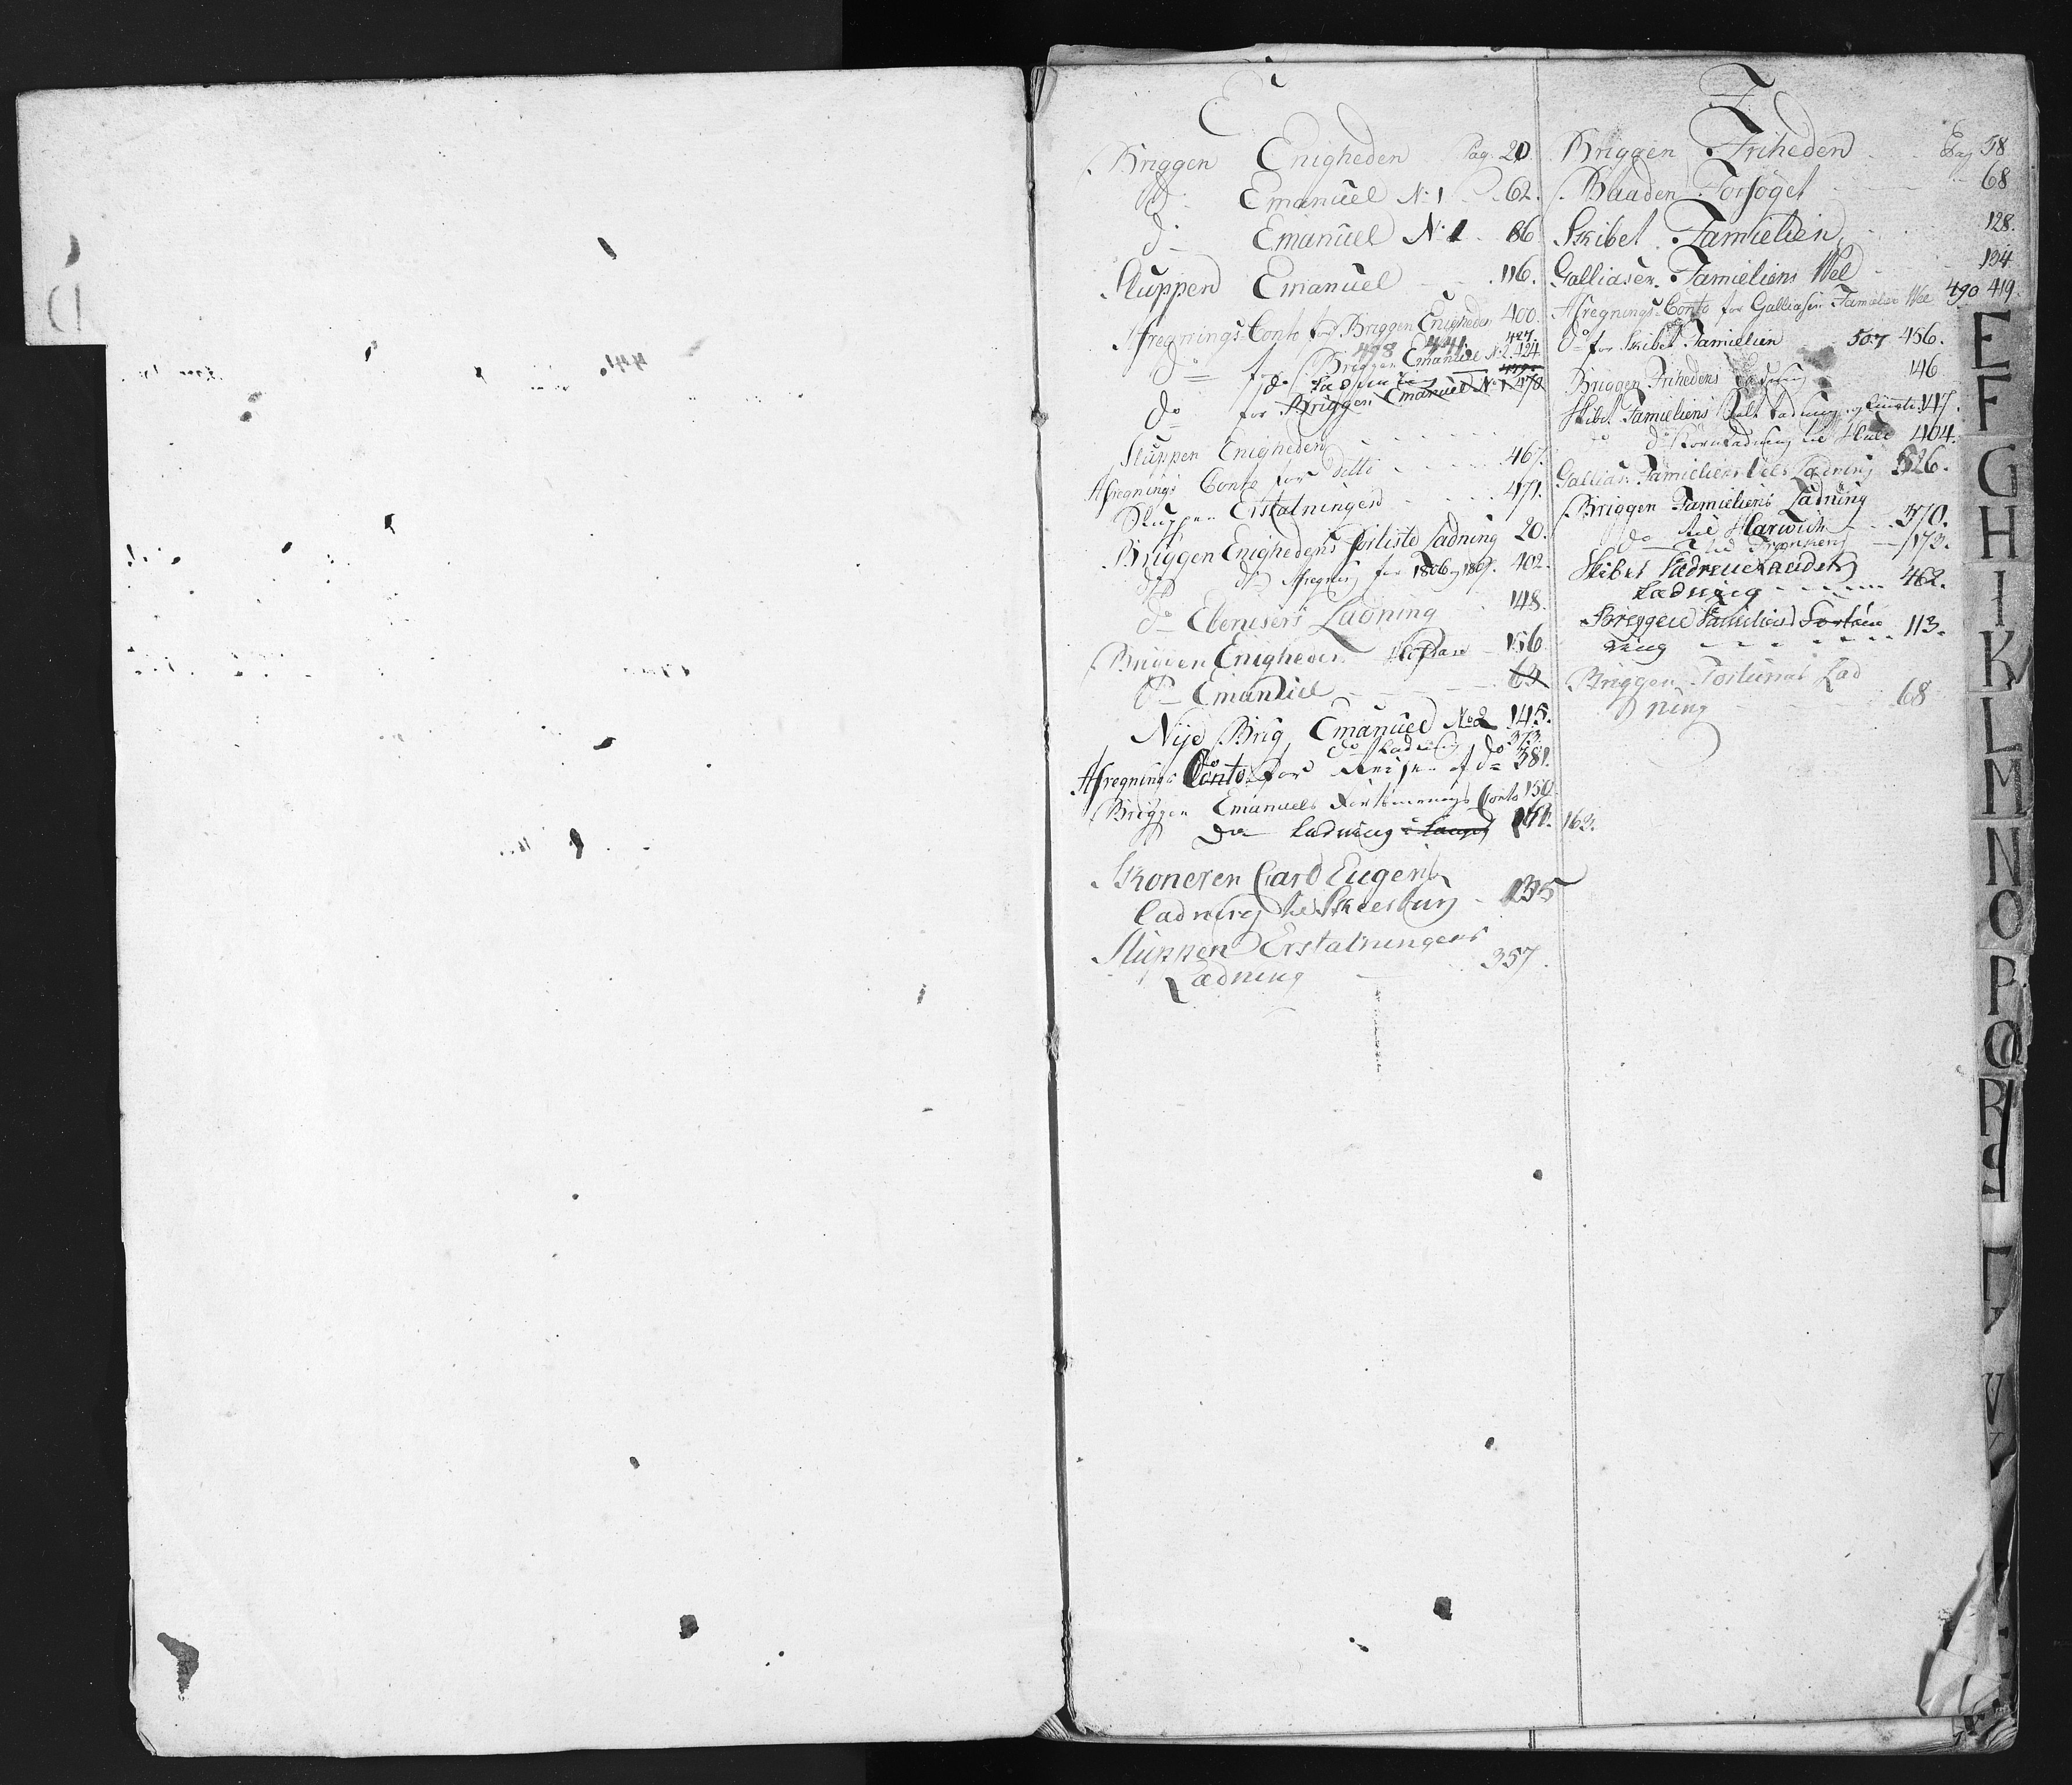 E
Briggen Enigheden Pag. 20.
do Emanuel No 1 62.
do Emanuel No 1. 86
Sluppen Emanuel 116.
Afregnings Conto for Briggen Enigheden 400.
498 441. 427.
do for Briggen Emanuel No 2. 424
do Ladning
do for Briggen Emanuel No 1. 478
Sluppen Enigheden
Afregnings Conto for ditto 467.
Sluppen Erstatningen 471.
Briggen Enighedens forliste Ladning 20.
do do Afregning for 1806 og 1807. 402.
do Ebenesers Ladning 148.
Briggen Enigheden 156
do Emanuel 63
Nye Brig Emanuel No 2 145.
do Ladning 373.
Afregnings Conto for Reisen af do 381.
Briggen Emanuels Fortømrings Conto 150.
do Ladning 161. 163.
Skoneren Carl Eugens
Ladning til 135
Sluppen Erstatningens
Ladning 357.
F
Briggen Friheden Pag 58
Baaden Forsøget 68
Skibet Famielien 128.
Galliasen Famieliens Vel 134
Afregnings Conto for Galliasen Famielien Vel 490 419.
do for Skibet Famielien 507 456.
Briggen Frihedens Ladning 146
Skibet Famieliens Ladning 147.
do Ladning til 404.
Gallias. Famieliens Vels Ladning 526.
Briggen Famieliens Ladning
til Harwich 370.
do til 173.
Skibet Fædrenelandets
Ladning 462.
Briggen Familiens Fortøm
ring 113.
Briggen Fortunas Lad
ning 68
D
E
F
G
H
I
K
L
M
N
O
P
Q
R
S
T
V